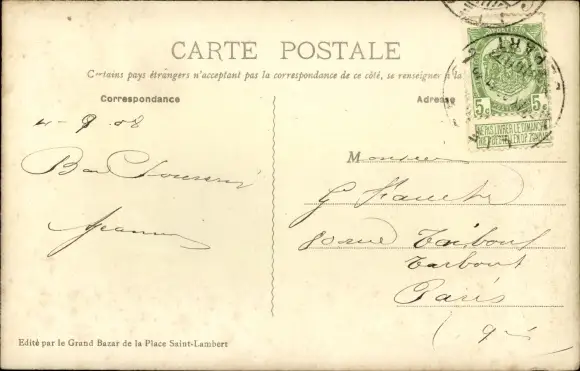 CARTE POSTALE
Certains pays étrangers n'acceptant pas la correspondance de ce côté, se renseigner à la
Correspondance
Adresse
4-9 08
Bon Souvenir
Monsieur
G Faucher
80 rue Taitbout
Taitbout
Paris
Edité par le Grand Bazar de la Place Saint-Lambert
5c 5c
NE PAS LIVRER LE DIMANCHE
NIET BESTELLEN OP ZONDAG
PART